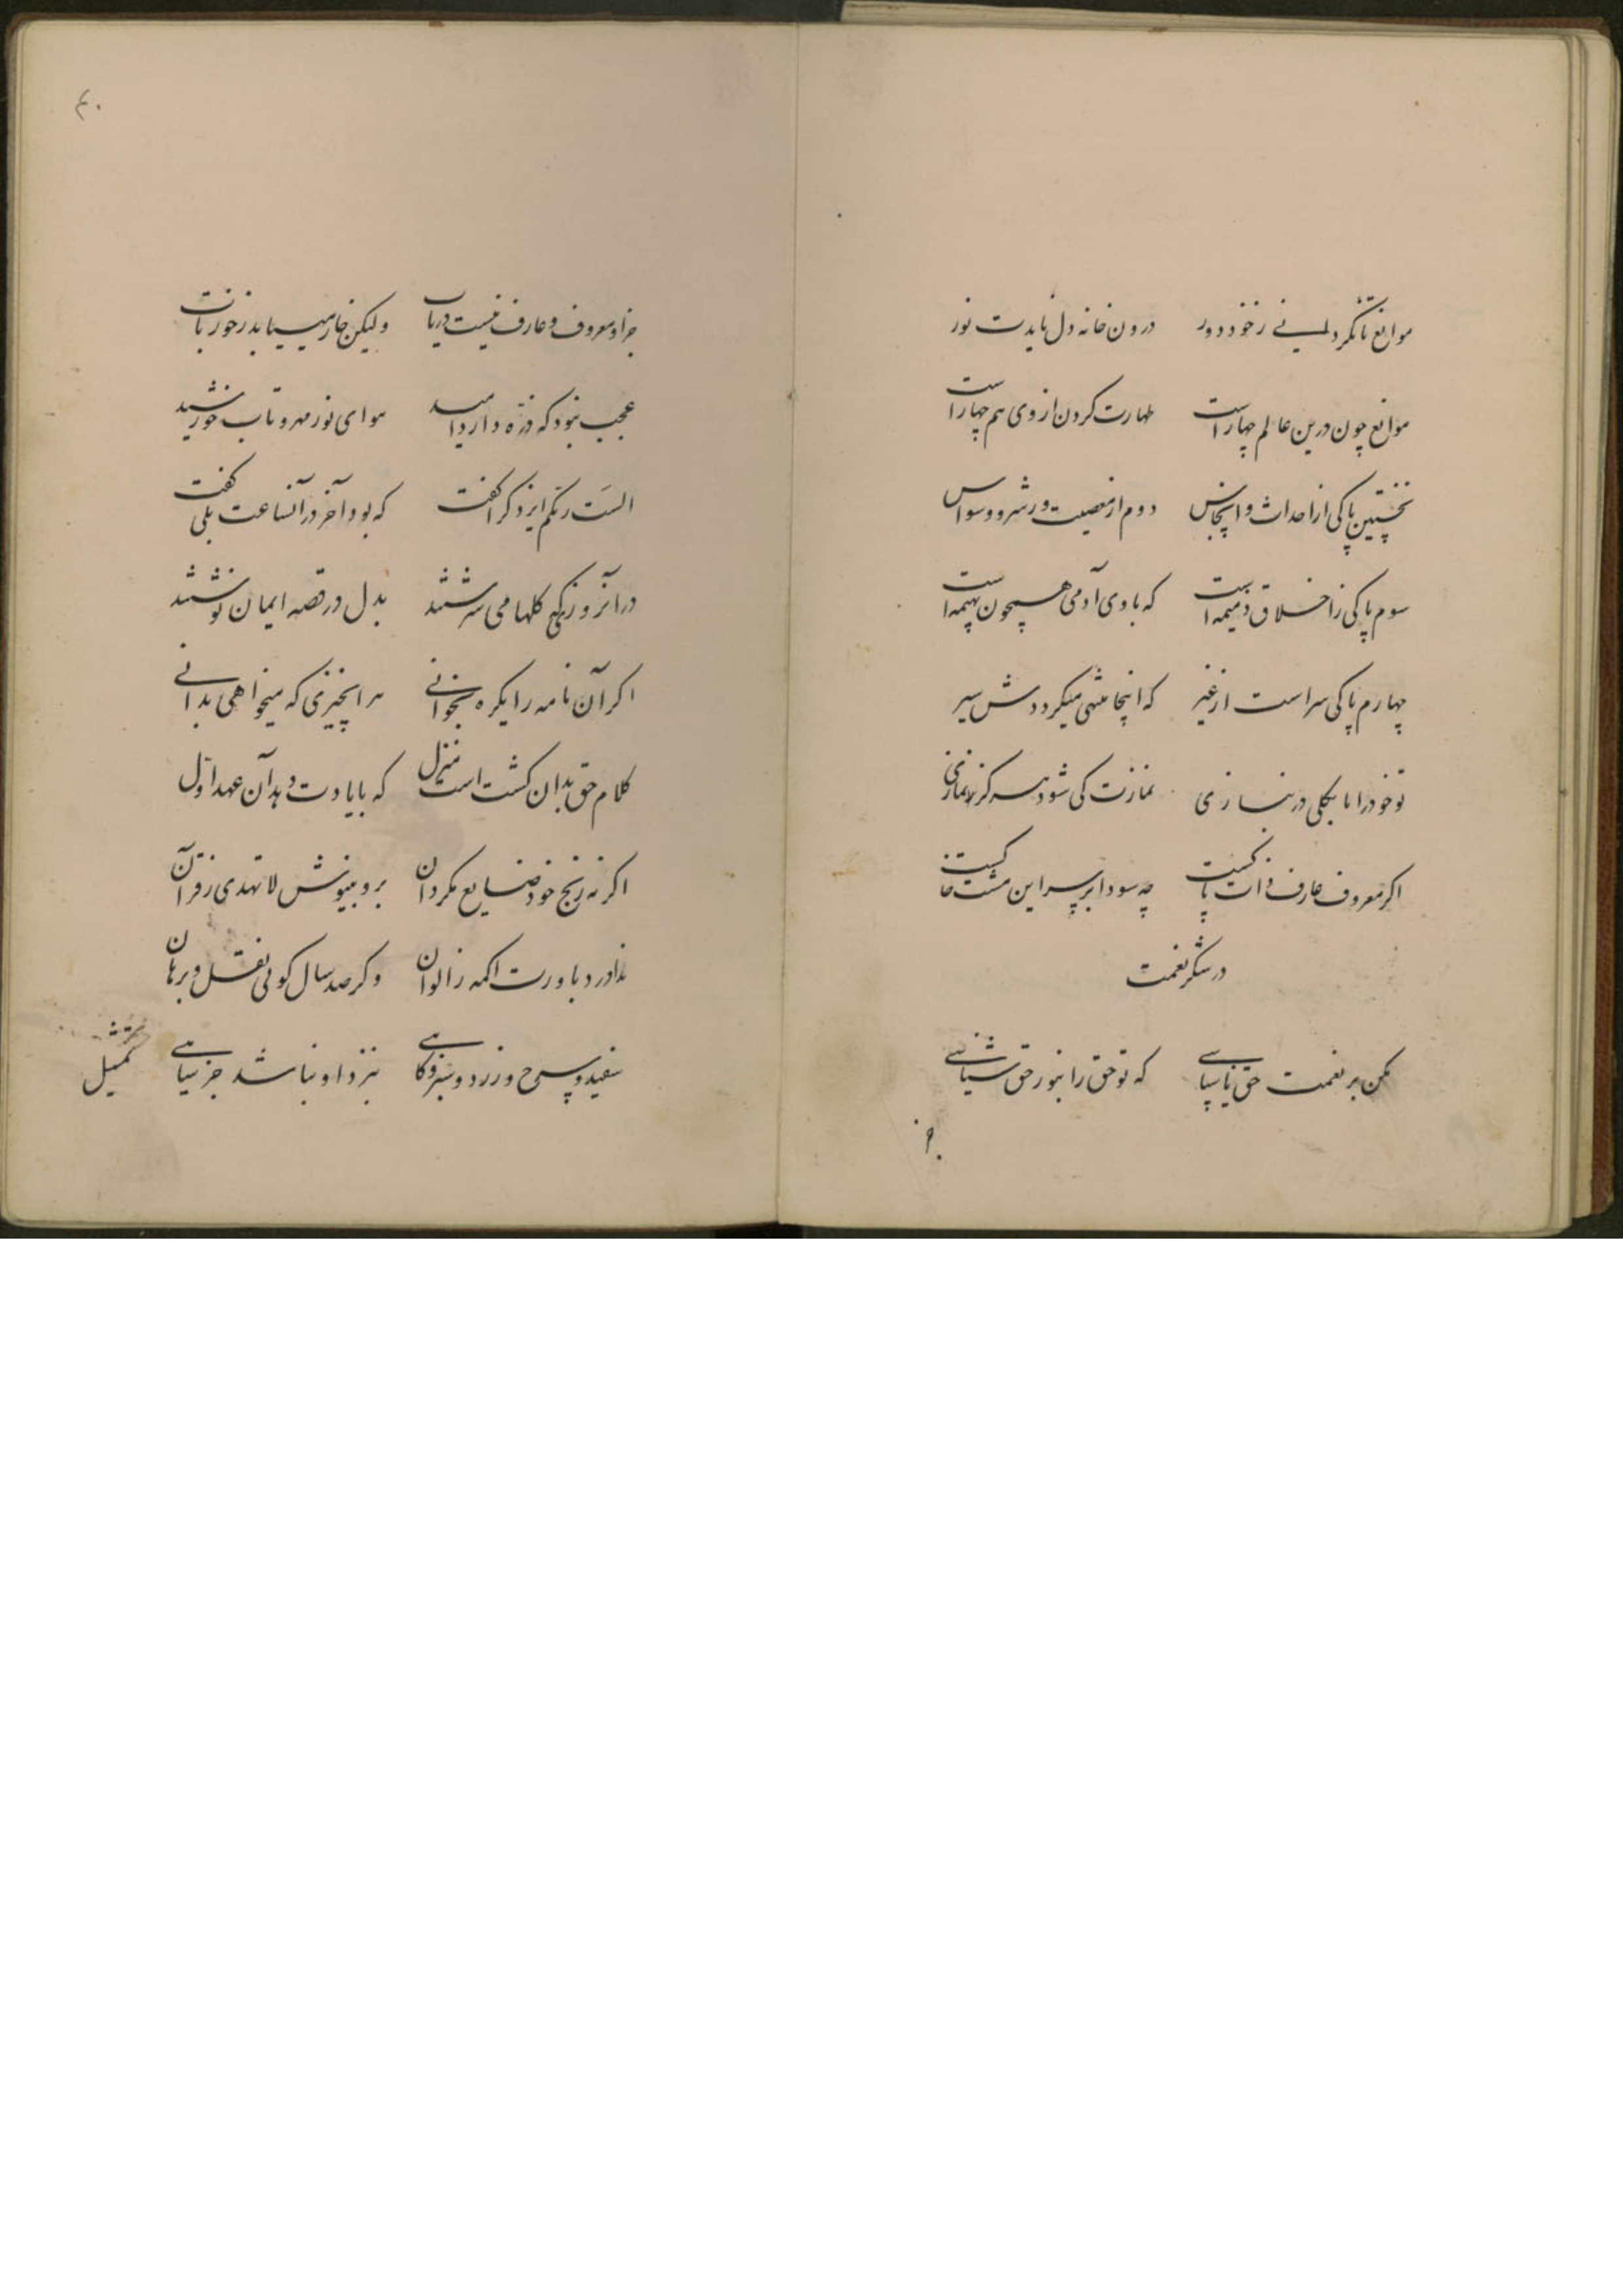 موانع تا نگردانی ز خود دور درون خانه دل نایدت نور
موانع چون درین عالم چهار است طهارت کردن از وی هم چهار است
نخستین پاکی از احداث و انجاس دوم از معصیت وز شر و وسواس
سوم پاکی ز اخلاق ذمیمه است که با وی آدمی همچون بهیمه است
چهارم پاکی سر است از غیر که اینجا منتهی میگرددش سیر
تو خود را تا بکلی در نبازی نمازت کی شود هرگز نمازی
اگر معروف و عارف ذات پاکیست چه سودا بر سر این مشت خاکیست
در شکر نعمت
مکن بر نعمت حق ناسپاسی که تو حق را بنور حق شناسی
۴۰
جز او معروف و عارف نیست دریاب ولیکن خاک می‌یابد ز خور تاب
عجب نبود که ذره دارد امید هوای نور مهر و تاب خورشید
الست ربکم ایزد کرا گفت که بود آخر در آنساعت بلی گفت
در آنروزی که گلها می سرشتند بدل در قصه ایمان نوشتند
اگر آن نامه را یکره بخوانی هر آنچیزی که میخواهی بدانی
کلام حق بدان گشت است منزل که با یادت دهد آن عهد اول
اگر نه رنج خود ضایع مگردان برو بنیوش لاتهدی ز قرآن
ندارد باورت اکمه ز الوان وگر صد سال گوئی نقل و برهان
سفید و سرخ و زرد و سبز و کاهی بنزد او نباشد جز سیاهی
تمثیل